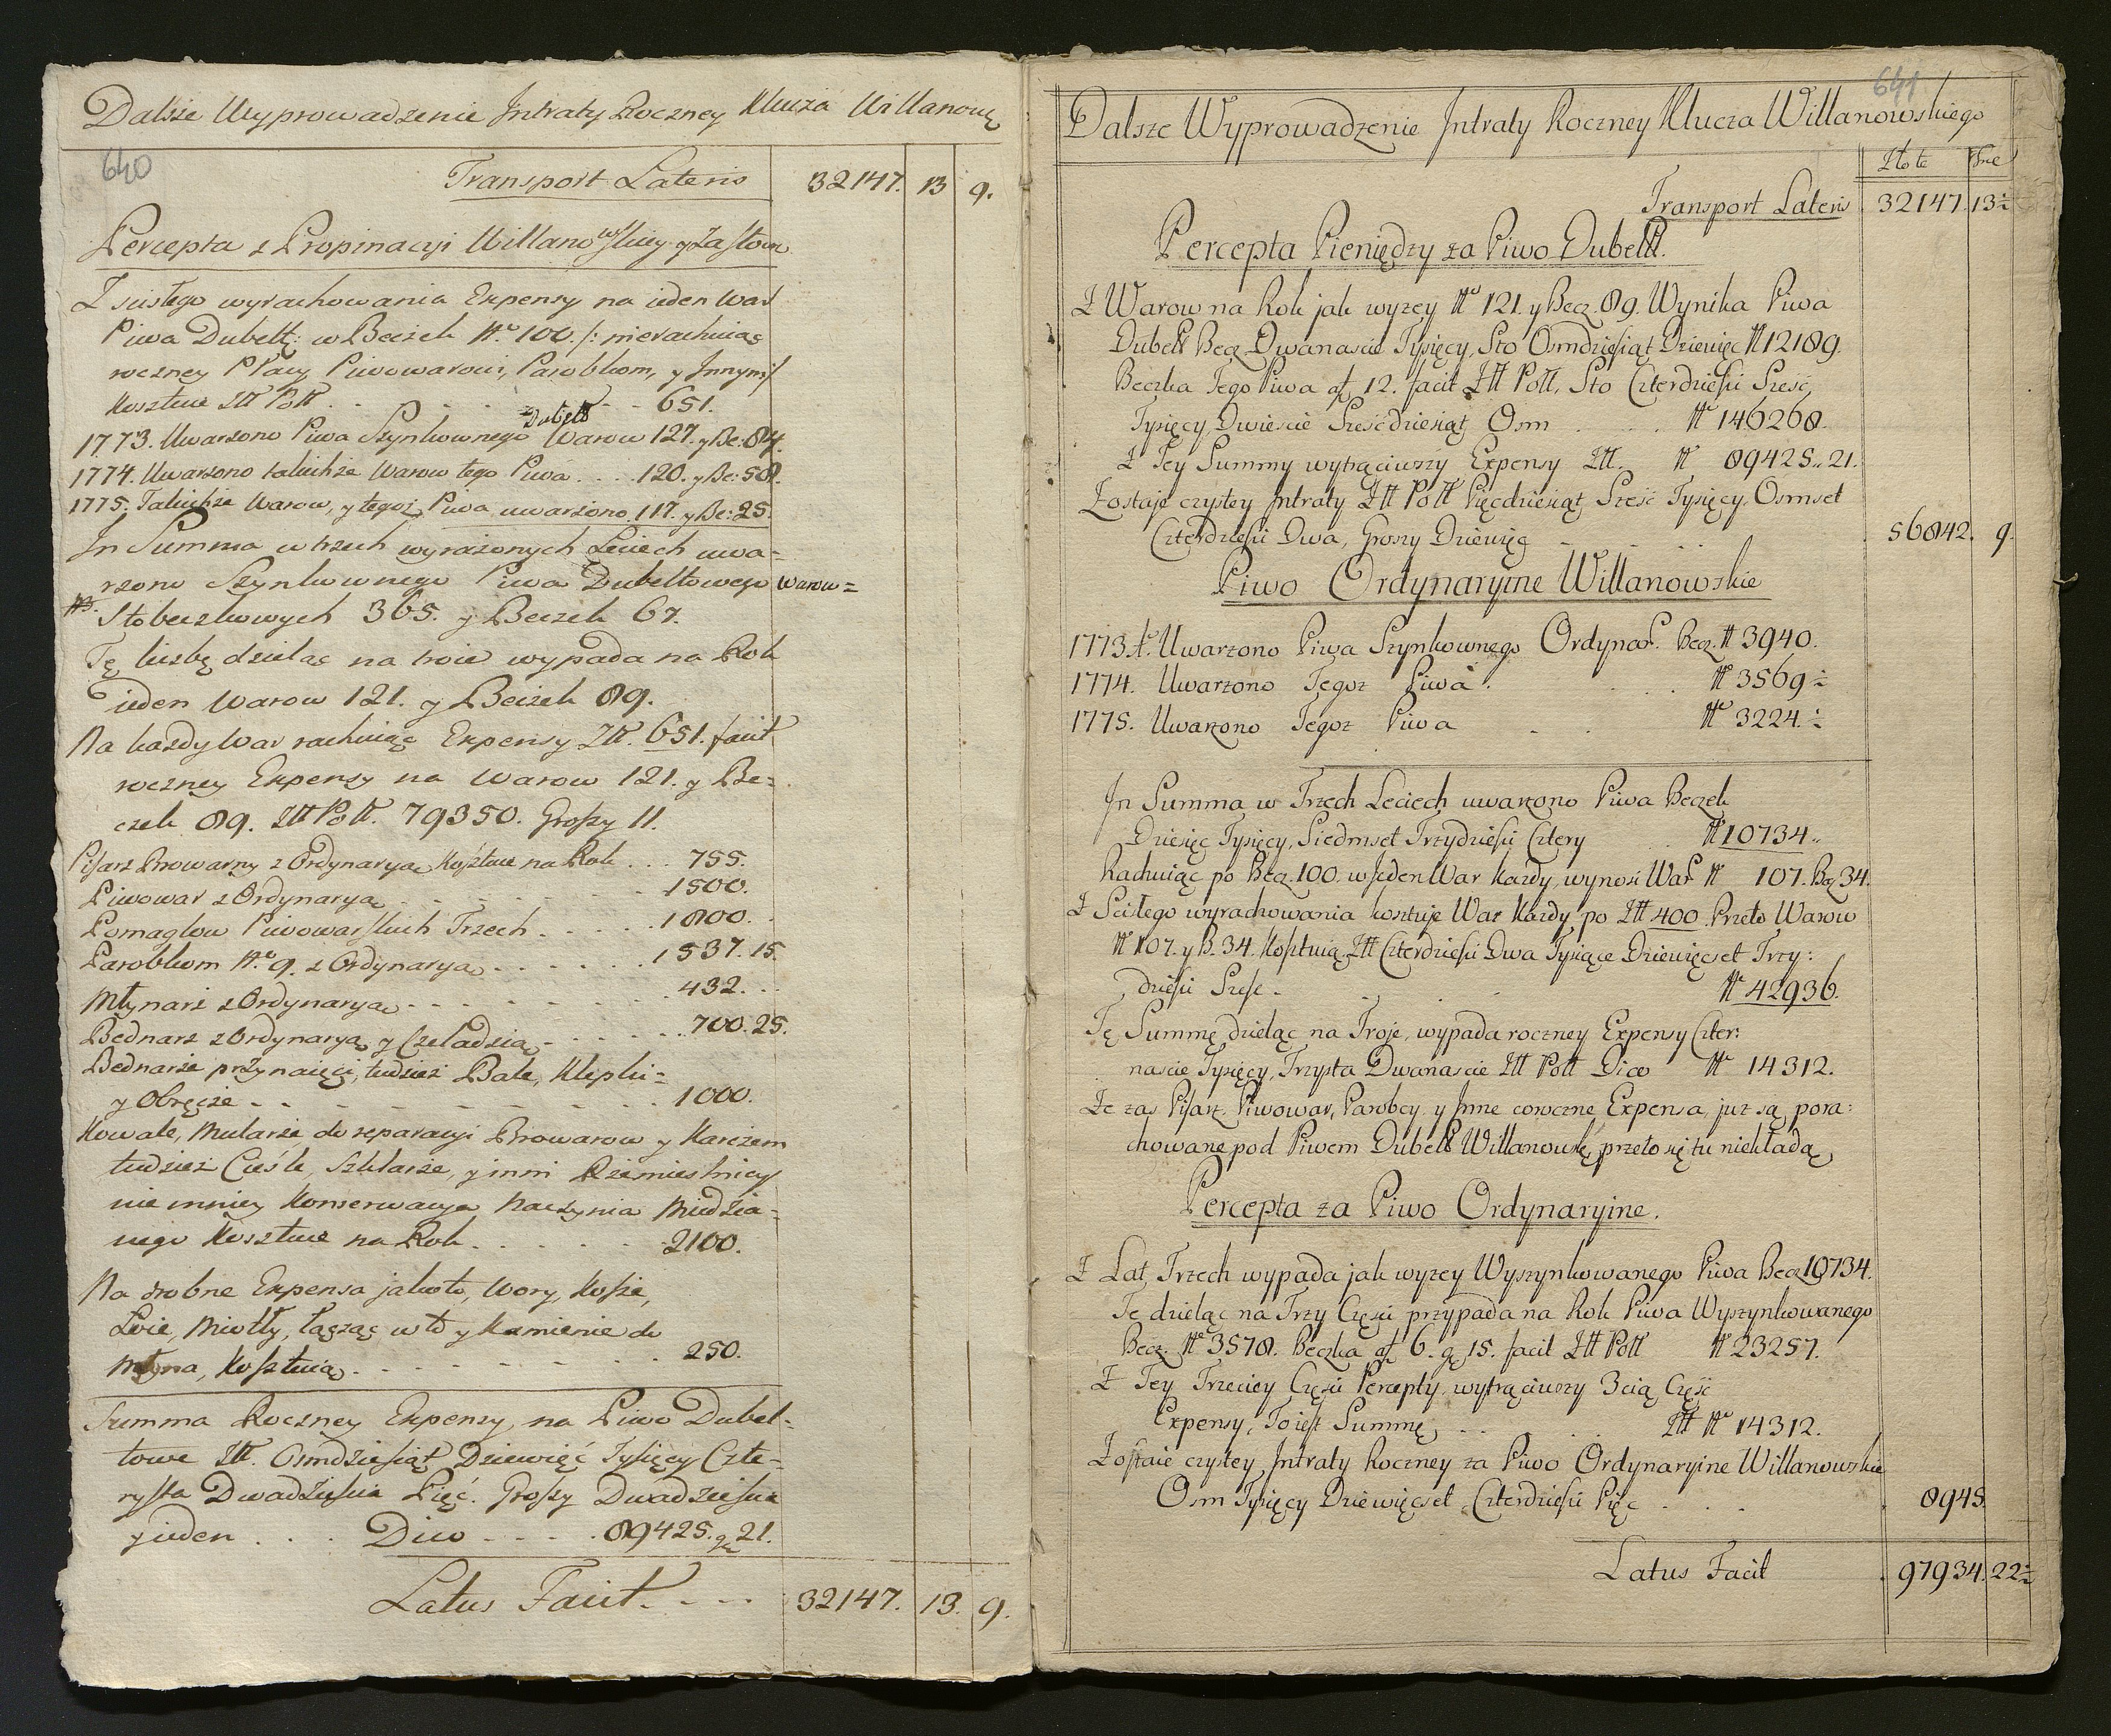 Dalsze Wyprowadzenie Jntraty Roczney Klucza Willanow:
640
Transport Lateris 32147. 13 9.
Percepta z Propinacyi Willanowskiey y Zastow
Z scisłego wyrachowania Expensy na ieden War
Piwa Dubelt: w Beczek No. 100. /: nierachuiąc
roczney Płacy Piwowarowi, Parobkom, y Jnnym :/
kosztuie Złł Poll - - - 651.
1773. Uwarzono Piwa Szynkownego Dubelt Warow 127. y Be: 84.
1774. Uwarzono takichże Warow tego Piwa . . . . 120. y Be: 58.
1775. Takichże Warow, y tegoż Piwa uwarzono 117. y Be: 25.
Jn Summa w trzech wyrażonych Leciech uwa-
rzono Szynkownego Piwa Dubeltowego Warow=
No. Stobeczkowych 365. y Beczek 67.
Tę liczbę dzieląc na troie wypada na Rok
ieden Warow 121. y Beczek 89.
Na każdy War rachuiąc Expensy Złł. 651. facit
roczney Expensy na Warow 121. y Be=
czek 89. Złł Poll. 79350. Groszy 11.
Pisarz Browarny z Ordynaryą Kosztuie na Rok . . . 755.
Piwowar z Ordynaryą - - - - - 1500.
Pomagłow Piwowarskich Trzech . . . . . 1800.
Parobkom No. 9. z Ordynaryą . . . . . . 1537. 15.
Młynarz z Ordynaryą - - - - - - 432. . .
Bednarz z Ordynaryą y Czeladzią - - - - . . 700. 25.
Bednarze przynaięci, tudzież Bale, Klepki=
y Obręcze - - - - - - - - 1000.
Kowale, Mularze, do reparacyi Browarow y Karczem
tudzież Cieśle, Szklarze, y inni Rzemieślnicy
nie mniey Konserwacya Naczynia Miedzia-
nego Kosztuie na Rok . . . . . 2100.
Na drobne Expensa jakoto, Wory, Kosze,
Łoie, Miotły, łącząc w to y Kamienie do
Młyna, Kosztuią . - - - - - - 250.
Summa Roczney Expensy na Piwo Dubel-
towe Złł. Osmdziesiąt Dziewięć Tysięcy Czte-
rysta Dwadzieścia Pięć. Groszy Dwadzieścia
y ieden . . . Dico - - - . 89425. gr 21.
Latus Facit. - - - 32147. 13. 9.
641
Dalsze Wyprowadzenie Jntraty Roczney Klucza Willanowskiego
Złote Gne
Transport Lateris 32147. 13 ÷
Percepta Pieniędzy za Piwo Dubelt.
Z Warow na Rok jak wyzey No 121. y Becz. 89. Wynika Piwa
Dubelt Becz Dwanascie Tysięcy, Sto Osmdziesiąt Dziewięc No 12189.
Beczka Tego Piwa af 12. facit Złł Poll, Sto Czterdziesci Sześć
Tysięcy Dwiescie Sześćdziesiąt Osm . . . No 146268.
Z Tey Summy wytrąciwszy Expensy Złł. No 89425.. 21.
Zostaje czystey Jntraty Złł Poll Pięcdziesiąt Sześć Tysięcy. Osmset
Czterdziesci Dwa, Groszy Dziewięc - . . . 56842. 9.
Piwo Ordynaryine Willanowskie
1773 A. Uwarzono Piwa Szynkownego Ordynar. Becz. No 3940.
1774. Uwarzono Tegoz Piwa . . . . No 3569 ÷
1775. Uwarzono Tegoz Piwa . . No 3224. ÷
Jn Summa w Trzech Leciech uwarzono Piwa Beczek
Dziesięc Tysięcy, Siedmset Trzydziesci Cztery . No 10734..
Rachuiąc po Becz. 100. w Jeden War kazdy, wynosi War. No 107. Bcz 34.
Z Scisłego wyrachowania kosztuje War kazdy po Złł 400. Przeto Warow
No 107. y B. 34. Kosztuią Złł Czterdziesci Dwa Tysiące Dziewięcset Trzy:
dziesci Szesc - . . . No 42936.
Tę Summę dzieląc na Troje, wypada roczney Expensy Czter:
nascie Tysięcy, Trzysta Dwanascie Złł Poll Dico No 14312.
Ze zas Pisarz, Piwowar, Parobcy, y Jnne coroczne Expensa, juz są pora:
chowane pod Piwem Dubelt Willanowsk, przeto się tu niekładą
Percepta za Piwo Ordynaryine.
Z Lat Trzech wypada jak wyzey Wyszynkowanego Piwa Becz 10734.
Te dzieląc na Trzy Częsci przypada na Rok Piwa Wyszynkowanego
Becz. No 3578. Beczka af 6. g 15. facit Złł Poll No 23257.
Z Tey Trzeciey Częsci Percepty, wytrąciwszy 3cią Część
Expensy, Toiest Summę . . . Złł No 14312.
Zostaie czystey Jntraty Roczney za Piwo Ordynaryine Willanowskie
Osm Tysięcy Dziewięcset Czterdziesci Pięc . . . 8945.
Latus Facit 97934. 22 ÷